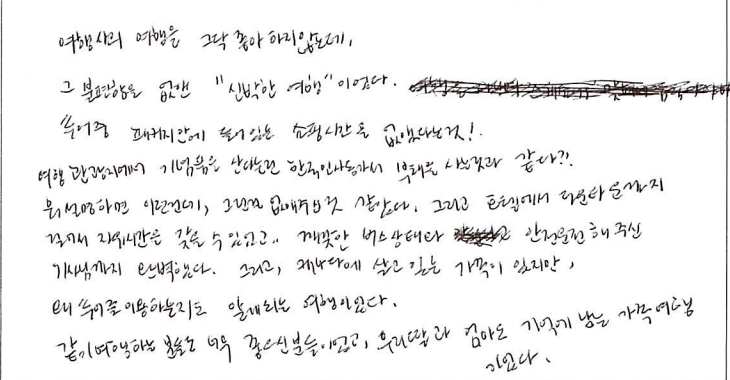 여행사의 여행을 그닥 좋아하지않는데,
그 불편함을 없앤 "신박한 여행"이었다.
투어중 패키지안에 들어있는 쇼핑시간을 없앴다는것!
여행 관광지에서 기념품을 산다는건 한국인사동가서 부채를 사는것과 같다?!
뭐 설명하면 이런건데, 그런걸 없애주신것 같았다. 그리고 호텔에서 다운타운까지
걸어서 자유시간을 갖을 수 있었고.. 깨끗한 버스상태와 안전운전해주신
기사님까지 완벽했다. 그리고, 캐나다에 살고 있는 가족이 있지만,
왜 투어를이용하는지도 알게되는 여행이었다.
같이여행하는 분들도 너무 좋으신분들이었고, 우리딸과 엄마도 기억에 남는 가족여행
이었다.